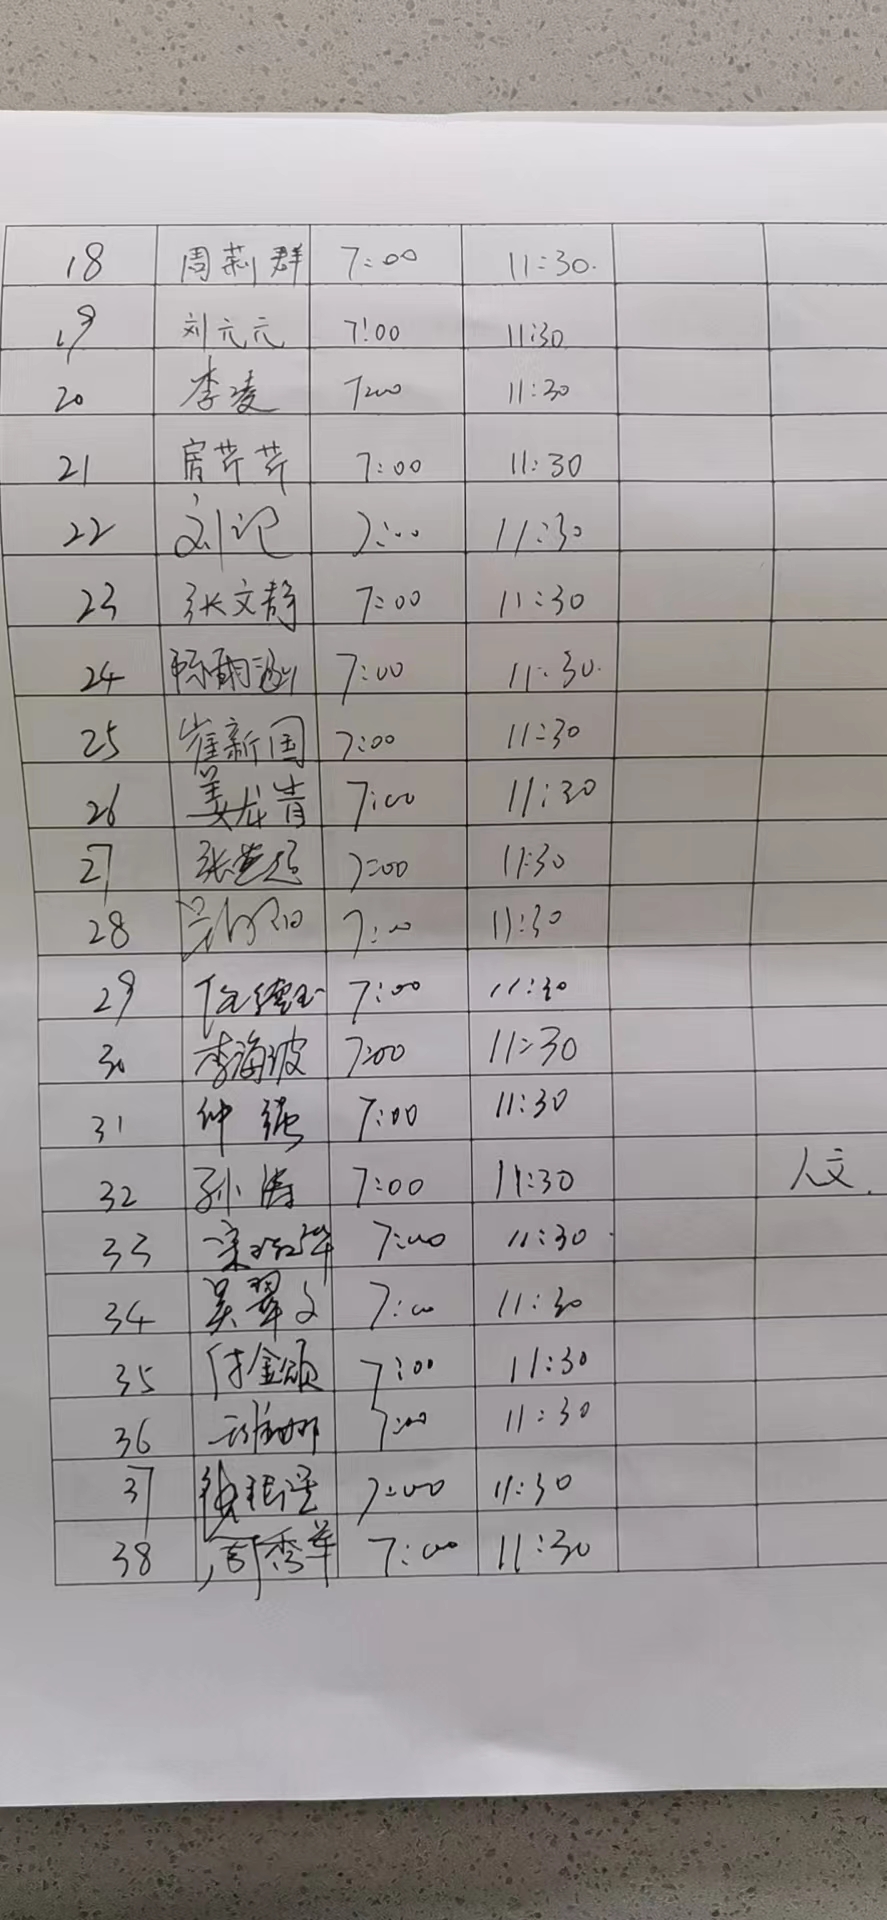 18 周莉群 7:00 11:30.
19 刘元元 7:00 11:30
20 李凌 7:00 11:30
21 房芹芹 7:00 11:30
22 刘记 7:00 11:30
23 张文静 7:00 11:30
24 7:00 11:30.
25 崔新国 7:00 11:30
26 姜龙青 7:00 11:30
27 7:00 11:30
28 7:00 11:30
29 7:00 11:30
30 李海波 7:00 11:30
31 仲强 7:00 11:30
32 孙涛 7:00 11:30 人文.
33 7:00 11:30
34 吴翠文 7:00 11:30
35 付金颂 7:00 11:30
36 7:00 11:30
37 7:00 11:30
38 周秀华 7:00 11:30